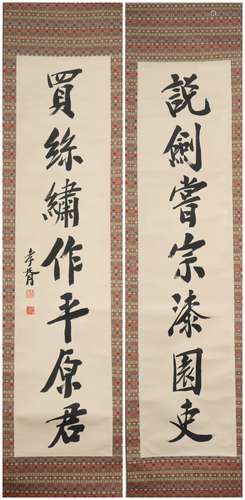 説劍嘗宗漆園吏
買絲繡作平原君
孝胥